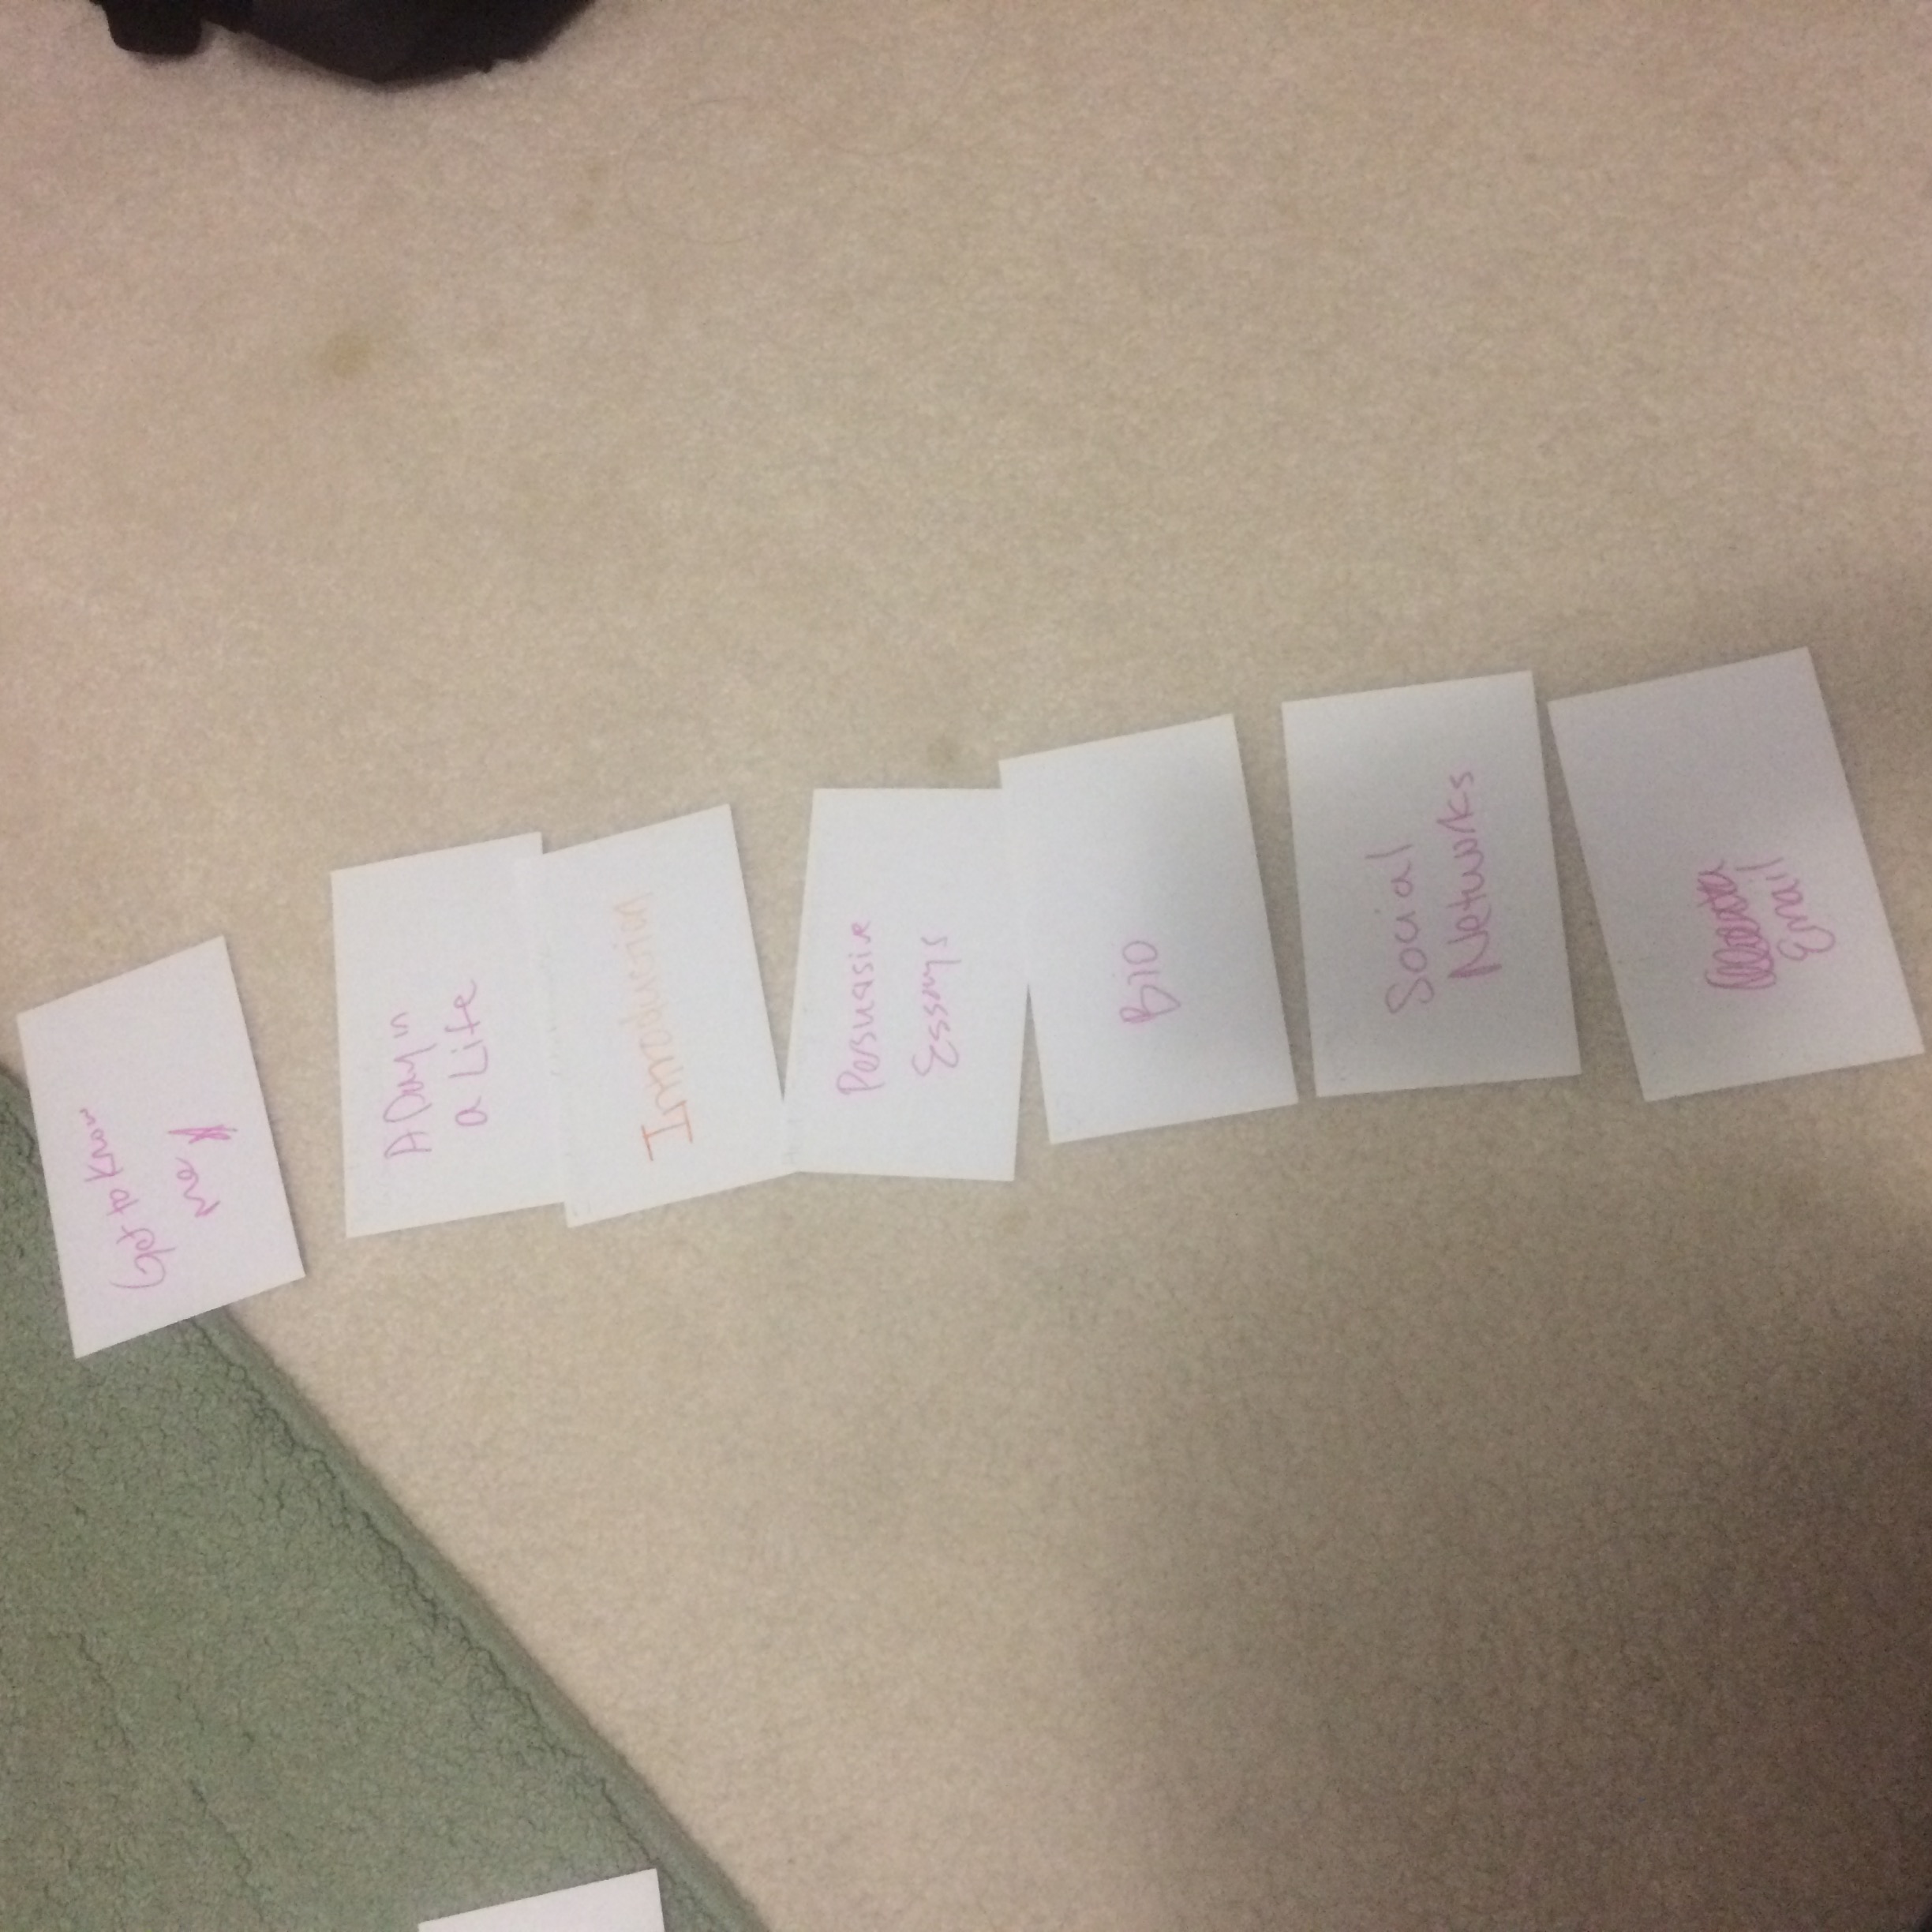 Get to Know
me
A Day in
a Life
Introduction
Persuasive
Essays
Bio
Social
Networks
Email